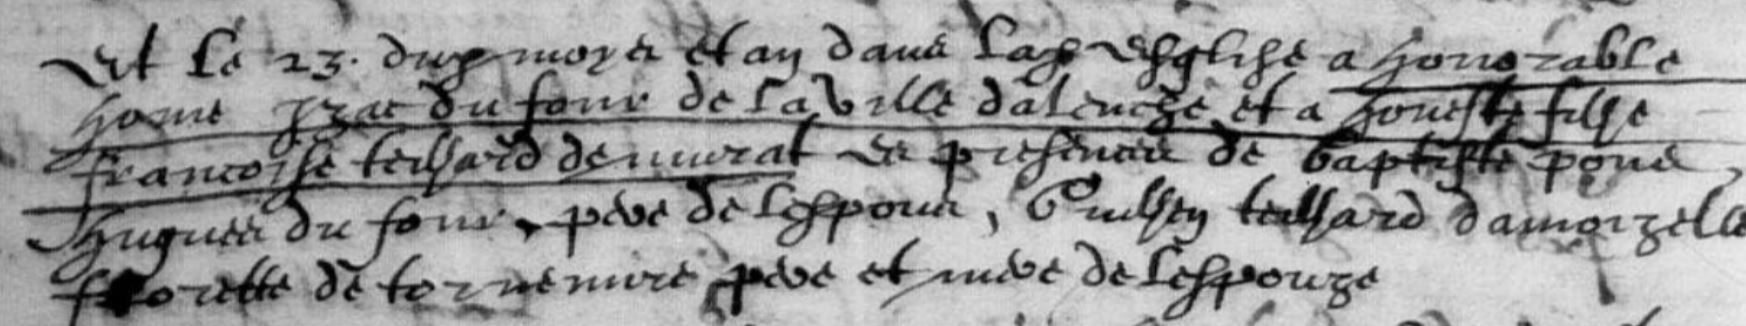 Et le 23. dud moys et an dans lad esglise a honorable
home Izac du four de la ville dalenche et a honeste filhe
francoise teilhard de murat es presences de baptiste pons,
hugues du four, pere de lespoux, Guilhen teilhard damoizelle
florette de tornemire pere et mere de lespouze